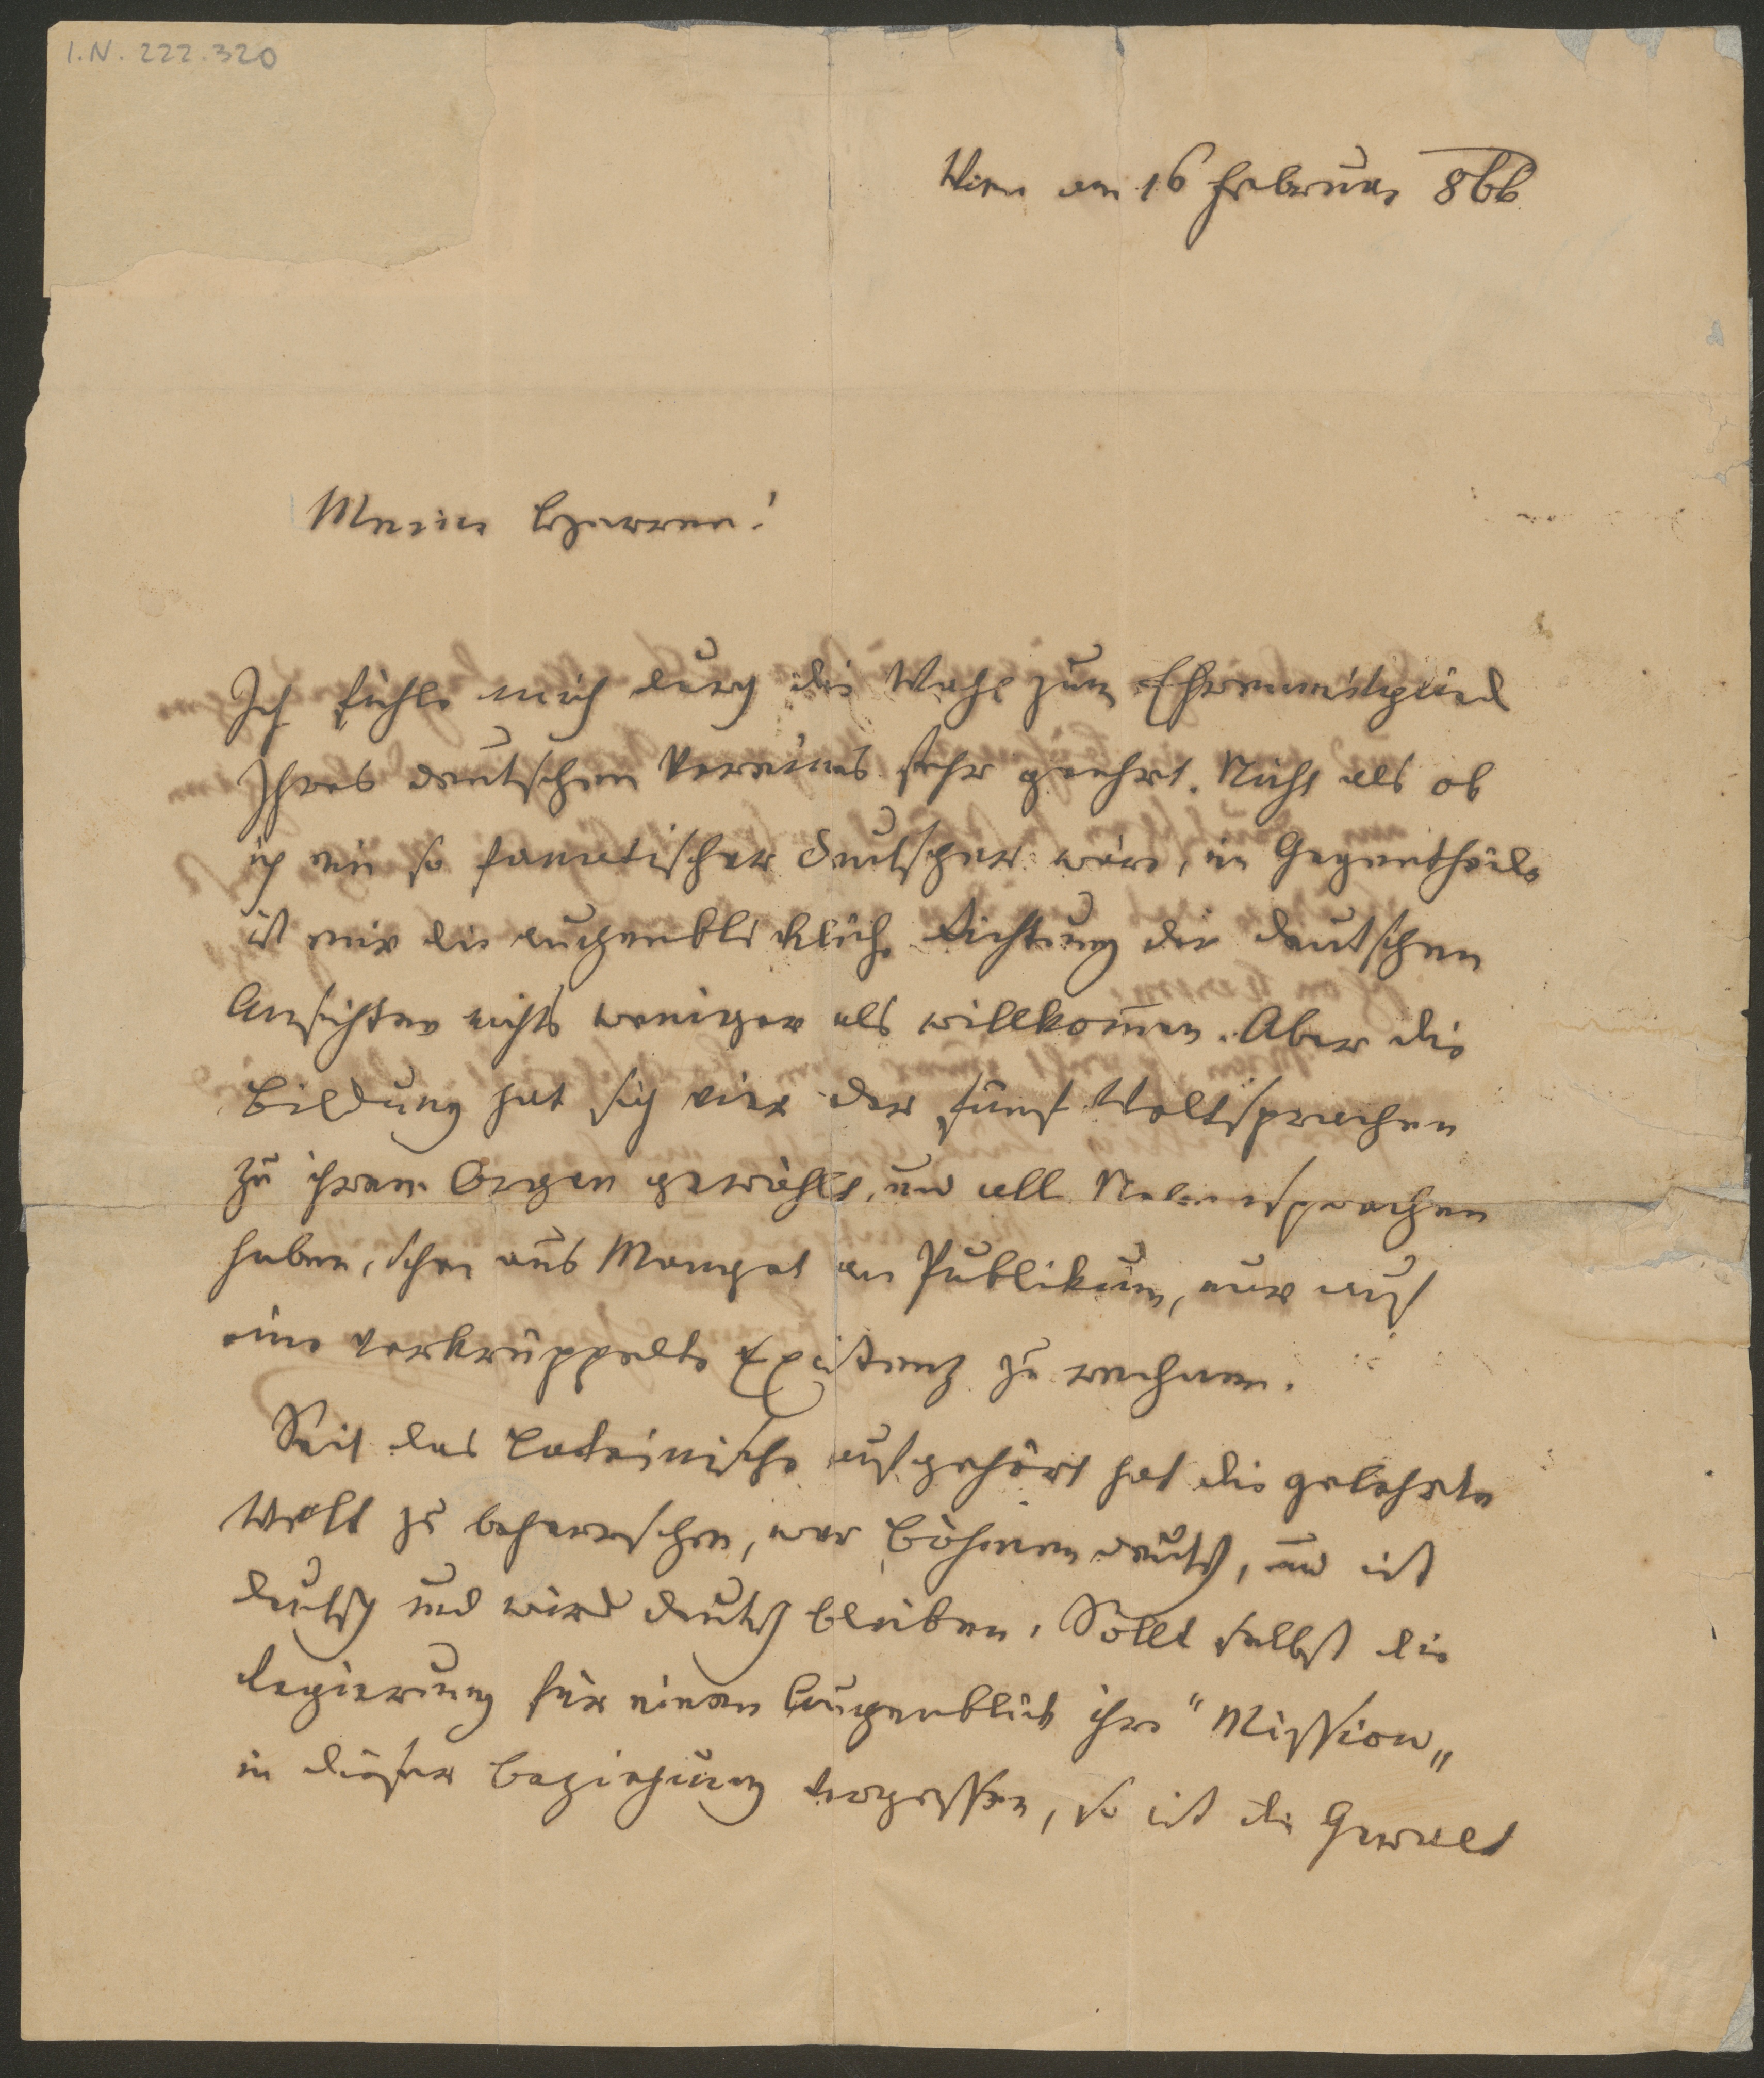 I.N. 222.320
Wien am 16 Februar 866
Meine Herren!
Ich fühle mich durch die Wahl zum Ehrenmitglied
Ihres deutschen Vereines sehr geehrt. Nicht als ob
ich ein so fanatischer Deutscher wäre, im Gegentheile
ist mir die augenblickliche Richtung der deutschen
Ansichten nichts weniger als willkom̅en. Aber die
Bildung hat sich vier der fünf Weltsprachen
zu ihrem Organ gewählt, und alle Nebensprachen
haben, schon aus Mangel an Publikum, nur auf
eine verkrüppelte Existenz zu rechnen.
Seit das Lateinische aufgehört hat die gelehrte
Welt zu beherrschen, war Böhmen deutsch, und ist
deutsch und wird deutsch bleiben. Sollt selbst die
Regierung für einen Augenblick ihre "Mission„
in dieser Beziehung vergessen, so ist die Gewalt